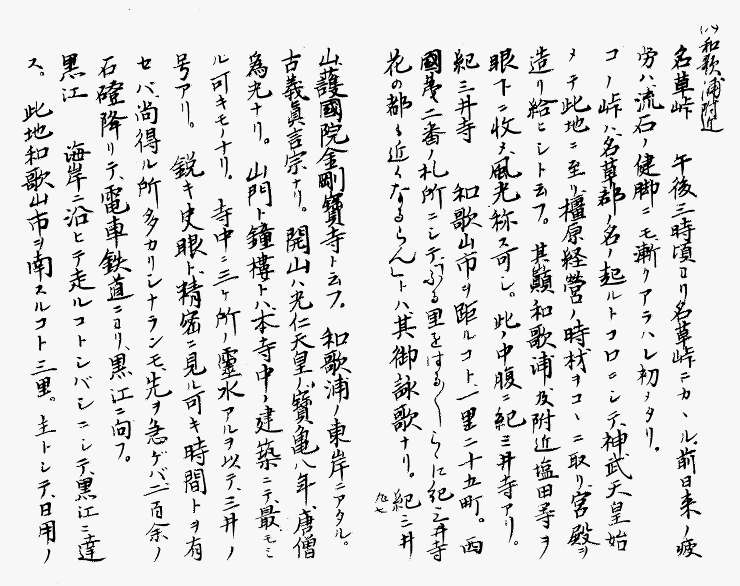 (ハ)和歌浦附近
名草峠　午後三時頃ヨリ名草峠ニカヽル。前日来ノ疲
労ハ流石ノ健脚ニモ漸クアラハレ初メタリ。
コノ峠ハ、名草郡ノ名ノ起ルトコロニシテ、神武天皇始
メテ此地ニ至リ、橿原経営ノ時材ヲコヽニ取リ、宮殿ヲ
造リ給ヒシト云フ。其顛和歌浦及附近塩田等ヲ
眼下ニ收メ、風光称ス可シ。此ノ中腹ニ紀三井寺アリ。
紀三井寺　和歌山市ヲ距ルコト、一里二十五町。西
國第二番ノ札所ニシテ、「ふる里をはる〲こゝに紀三井寺
花の都も近くなるらん」トハ其御詠歌ナリ。紀三井
山、護國院金剛寶寺ト云フ。和歌浦ノ東岸ニアタル。
古義眞言宗ナリ。開山ハ光仁天皇ノ寶亀八年、唐僧
為光ナリ。山門ト鐘樓トハ本寺中ノ建築ニテ、最モミ
ル可キモノナリ。寺中ニ三ヶ所ノ靈水アルヲ以テ、三井ノ
号アリ。鋭キ史眼ト、精密ニ見ル可キ時間トヲ有
セバ、尚得ル所多カリシナランモ、先ヲ急ゲバ、二百余ノ
石磴降リテ、電車鉄道ニヨリ、黒江ニ向フ。
黒江　海岸ニ沿ヒテ走ルコトシバシニシテ、黒江ニ達
ス。此地和歌山市ヲ南スルコト三里。主トシテ、日用ノ